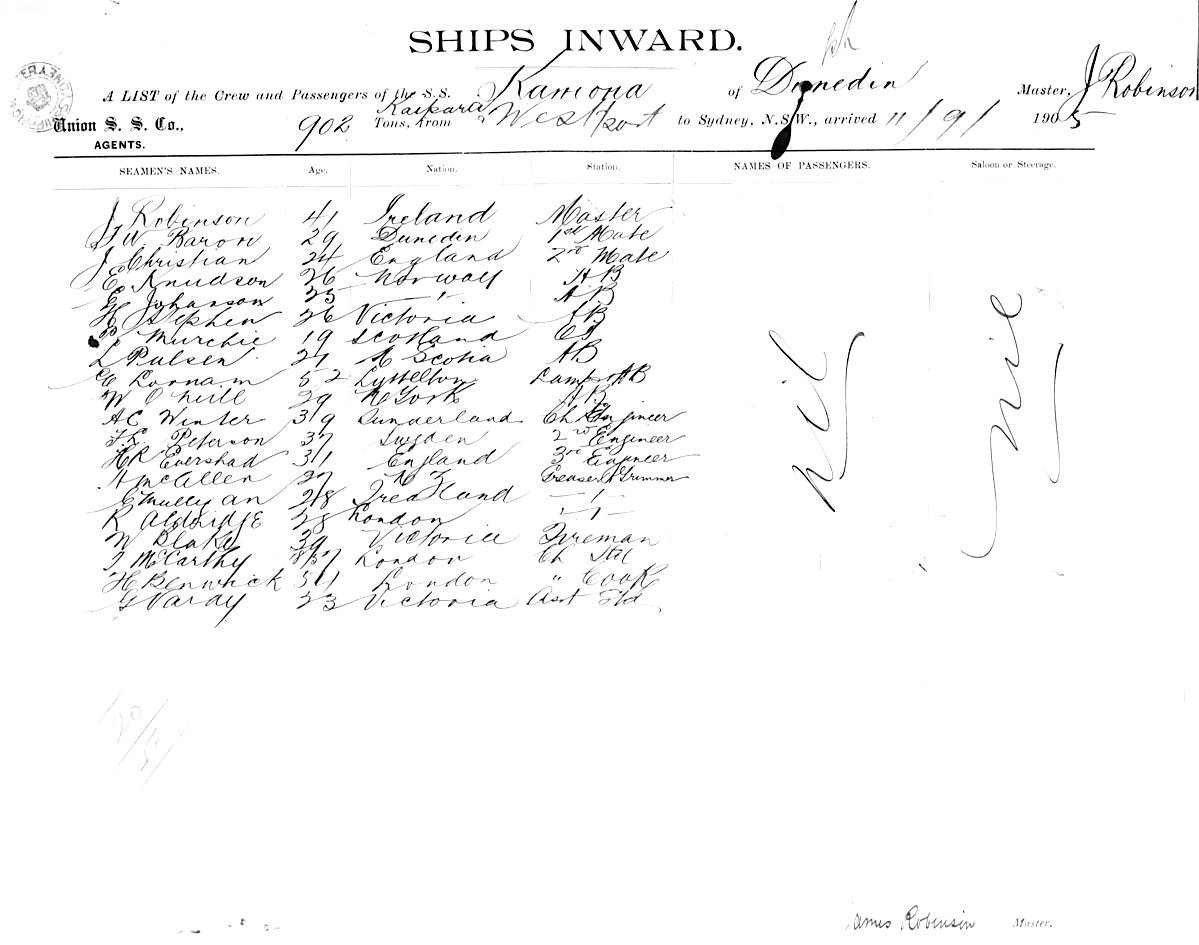 SHIPS INWARD.
A LIST of the Crew and Passengers of the S.S. Kamona of Dunedin Master, J Robinson
Union S. S. Co., 902 Tons, from Kaipara & Westport to Sydney, N.S.W., arrived 11/9/ 1905
AGENTS.
SEAMEN'S NAMES. Age. Nation. Station. NAMES OF PASSENGERS. Saloon or Steerage.
J Robinson 41 Ireland Master
W. Baron 29 Dunedin 1st Mate
J Christian 24 England 2nd Mate
E Knudson 26 Norway AB
Johanson 23 — " — AB
H Stephen 26 Victoria AB
P Murchie 19 Scotland
L Pulsen 27 N Scotia AB
52 Lyttelton Lamps AB
W O'Neill 29 N York AB
AC Winter 39 Sunderland Ch Engineer
Peterson 37 Sweden 2nd Engineer
HR Evershad 31 England 3rd Engineer
A McAllen 27 N Z Greaser & Trimmer
28 Ireland — " —
R Aldridge 28 London — " —
W Blake 39 Victoria Fireman
McCarthy 37 London Ch Std
H Benwick 51 London " Cook
G Varay 23 Victoria Asst Std
Nil Nil
James Robinson Master.